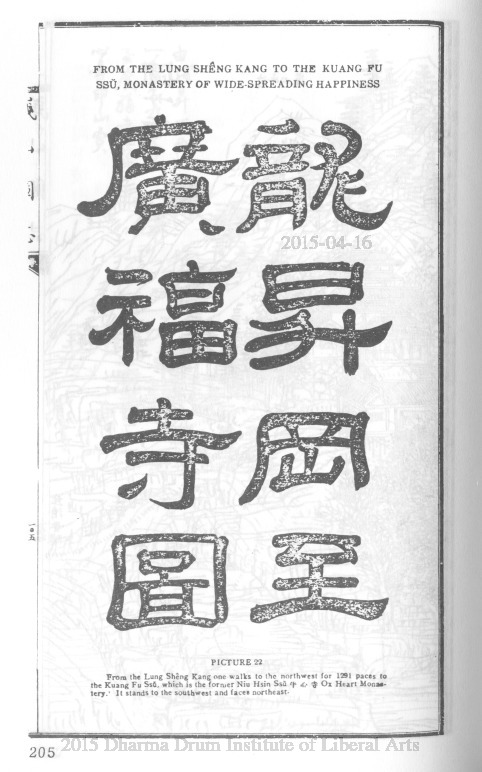 FROM THE LUNG SHÊNG KANG TO THE KUANG FU
SSŬ, MONASTERY OF WIDE-SPREADING HAPPINESS
龍昇岡至
廣福寺圖
2015-04-16
PICTURE 22
From the Lung Shêng Kang one walks to the northwest for 1291 paces to
the Kuang Fu Ssŭ, which is the former Niu Hsin Ssŭ 牛心寺 Ox Heart Monas-
tery.¹ It stands to the southwest and faces northeast.
205
2015 Dharma Drum Institute of Liberal Arts